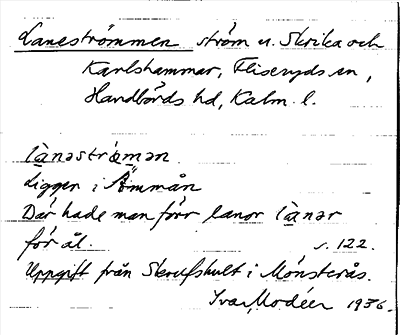 Laneströmmen ström n. Skrika och
Karlshammar, Fliseryds sn,
Handbörds hd, Kalm. l.
lànəstrǿmən
Ligger i Ämmån
Där hade man förr lanor lànər
för ål. s. 122.
Uppgift från Skrufshult i Mönsterås.
Ivar Modéer 1936.